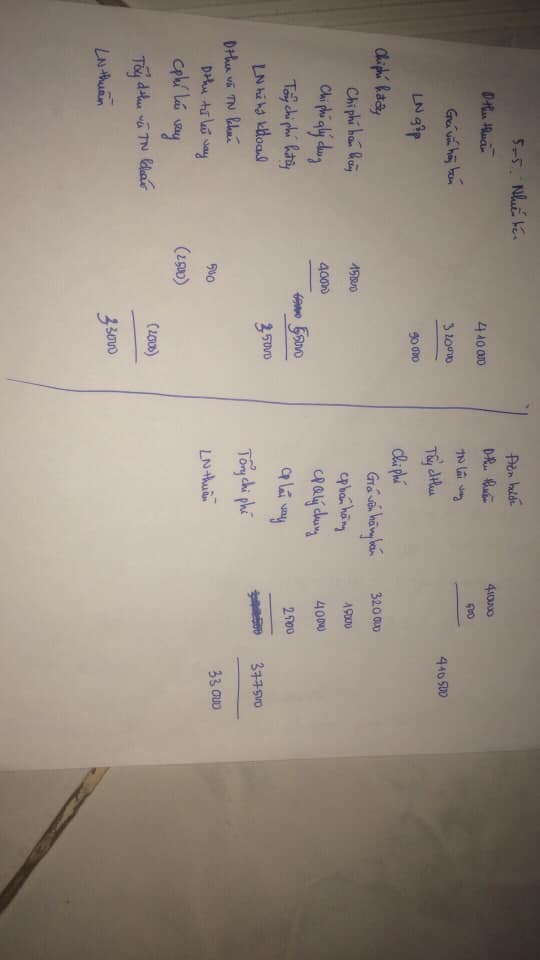 5-5. Nhiều bước
Dthu thuần 410000
Giá vốn hàng bán 320000
LN gộp 90000
Chi phí hđộng
Chi phí bán hàng 15000
Chi phí qlý chung 40000
Tổng chi phí hđộng 55000
LN từ hđ kdoanh 35000
Dthu và TN khác
Dthu từ lãi vay 500
Cphí lãi vay (2500)
Tổng dthu và TN khác (2000)
LN thuần 33000
Đơn bước
Dthu thuần 410000
TN lãi vay 500
Tổng dthu 410500
Chi phí
Giá vốn hàng bán 320000
CP bán hàng 15000
CP Qlý chung 40000
CP lãi vay 2500
Tổng chi phí 377500
LN thuần 33000